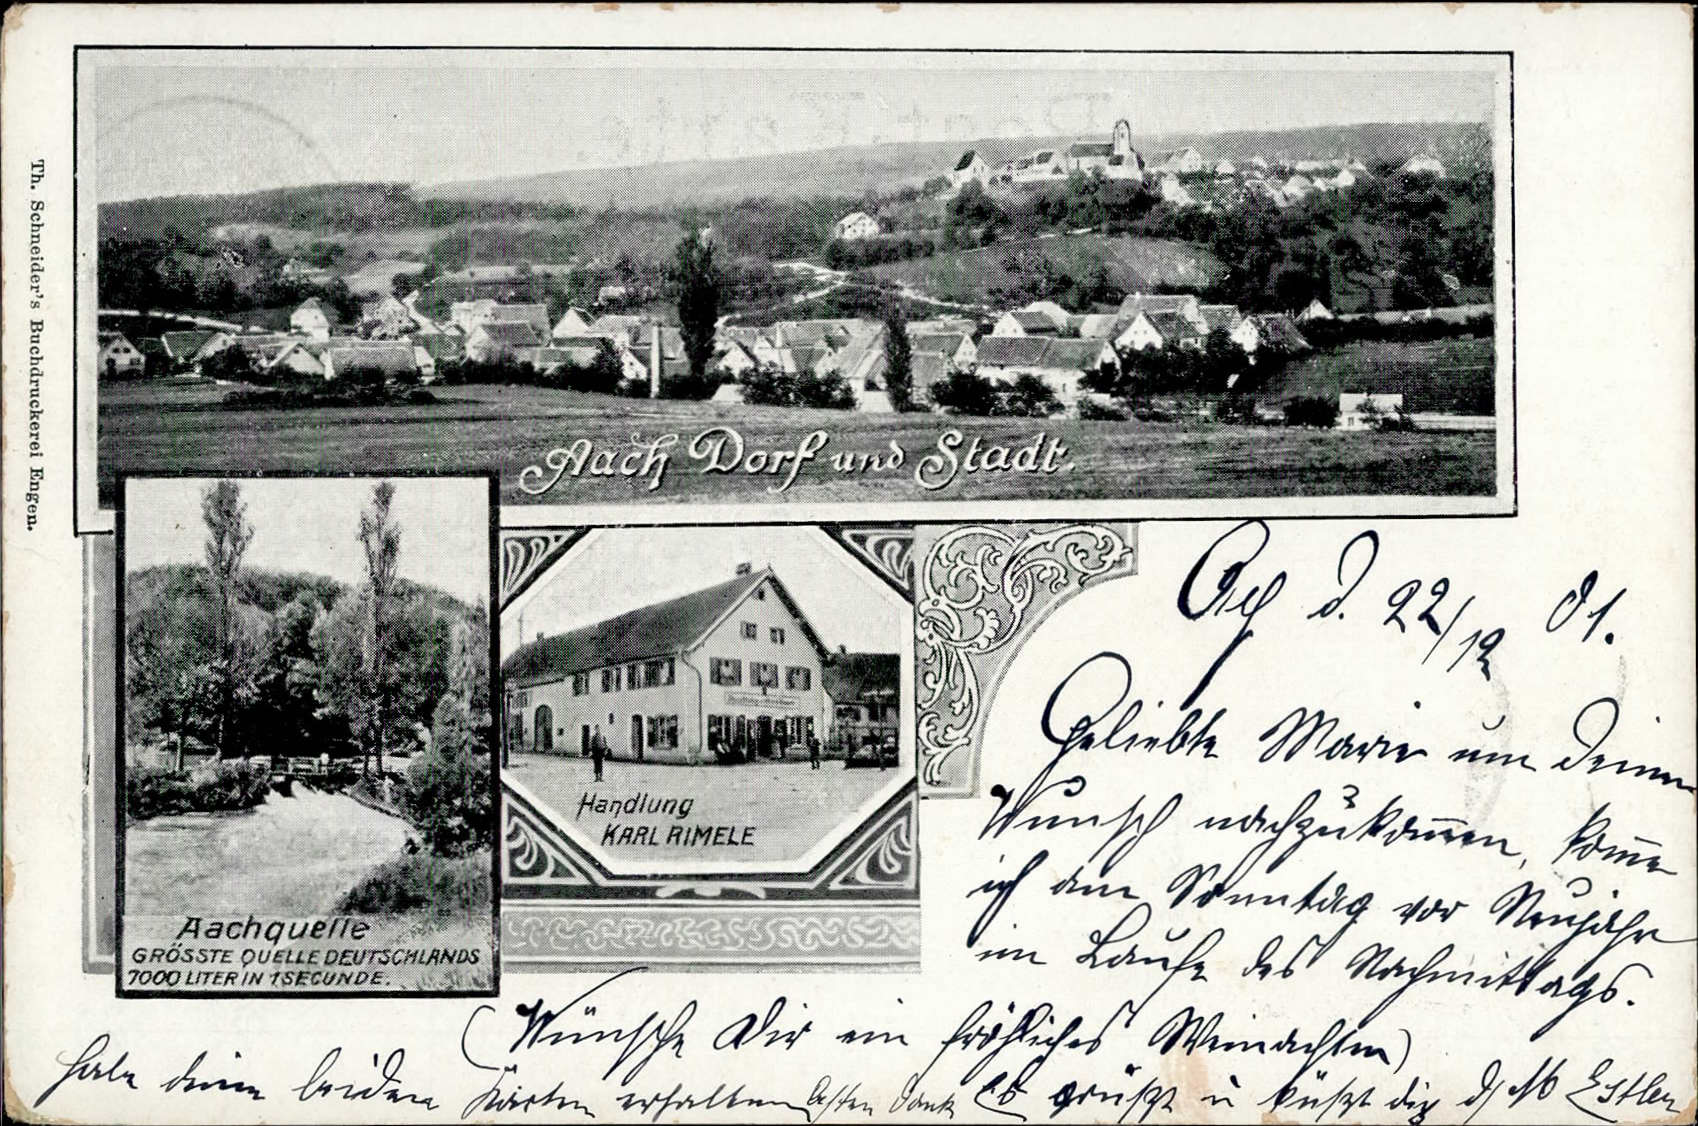 Th. Schneider's Buchdruckerei Engen.
Aach Dorf und Stadt.
Aachquelle
GRÖSSTE QUELLE DEUTSCHLANDS
7000 LITER IN 1 SECUNDE.
Handlung
KARL RIMELE
d. 22/12 01.
Geliebte Marie um Deinen
Wunsch nachzukom̅en, kom̅e
ich am Sonntag vor Neujahr
im Laufe des Nachmittags.
(Wünsche Dir ein fröhliches Weinachten)
Habe deine beiden Karten erhalten besten Dank Es grüßt u küßt dich